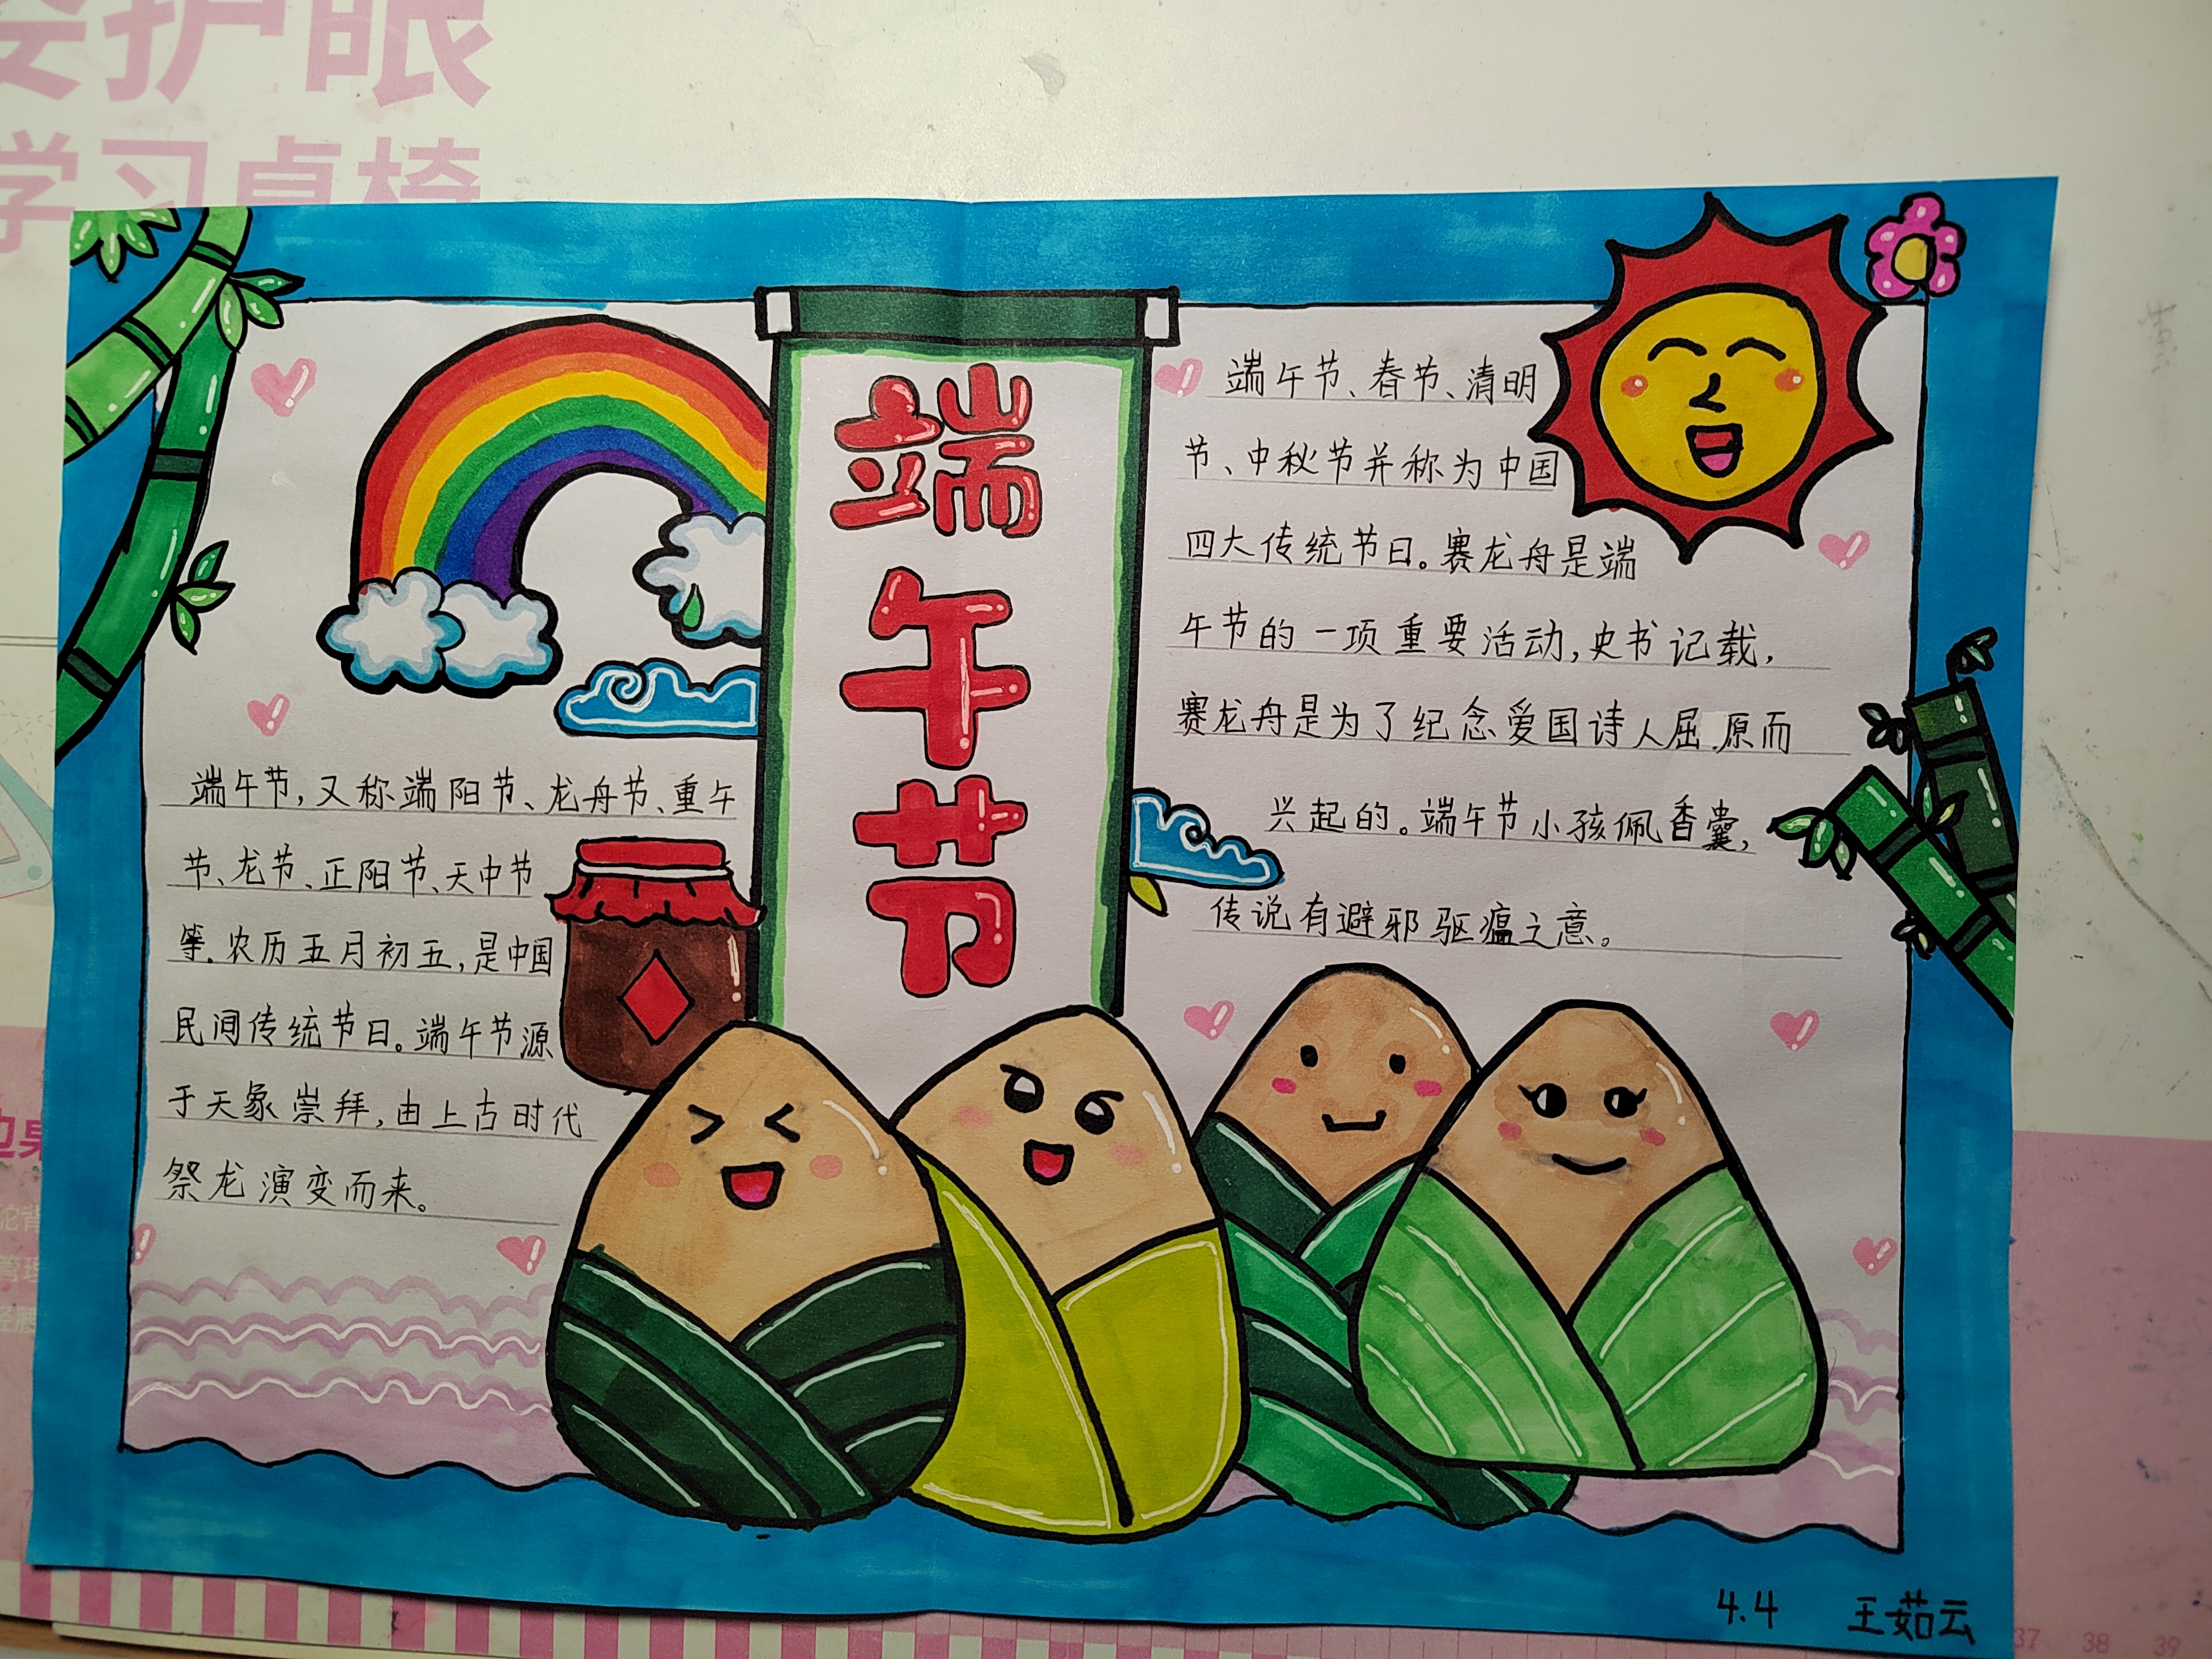 护眼
学习桌椅
端午节
端午节，又称端阳节、龙舟节、重午
节、龙节、正阳节、天中节
等.农历五月初五，是中国
民间传统节日。端午节源
于天象崇拜，由上古时代
祭龙演变而来。
端午节、春节、清明
节、中秋节并称为中国
四大传统节日。赛龙舟是端
午节的一项重要活动，史书记载，
赛龙舟是为了纪念爱国诗人屈原而
兴起的。端午节小孩佩香囊，
传说有避邪驱瘟之意。
4.4 王茹云
37 38 39